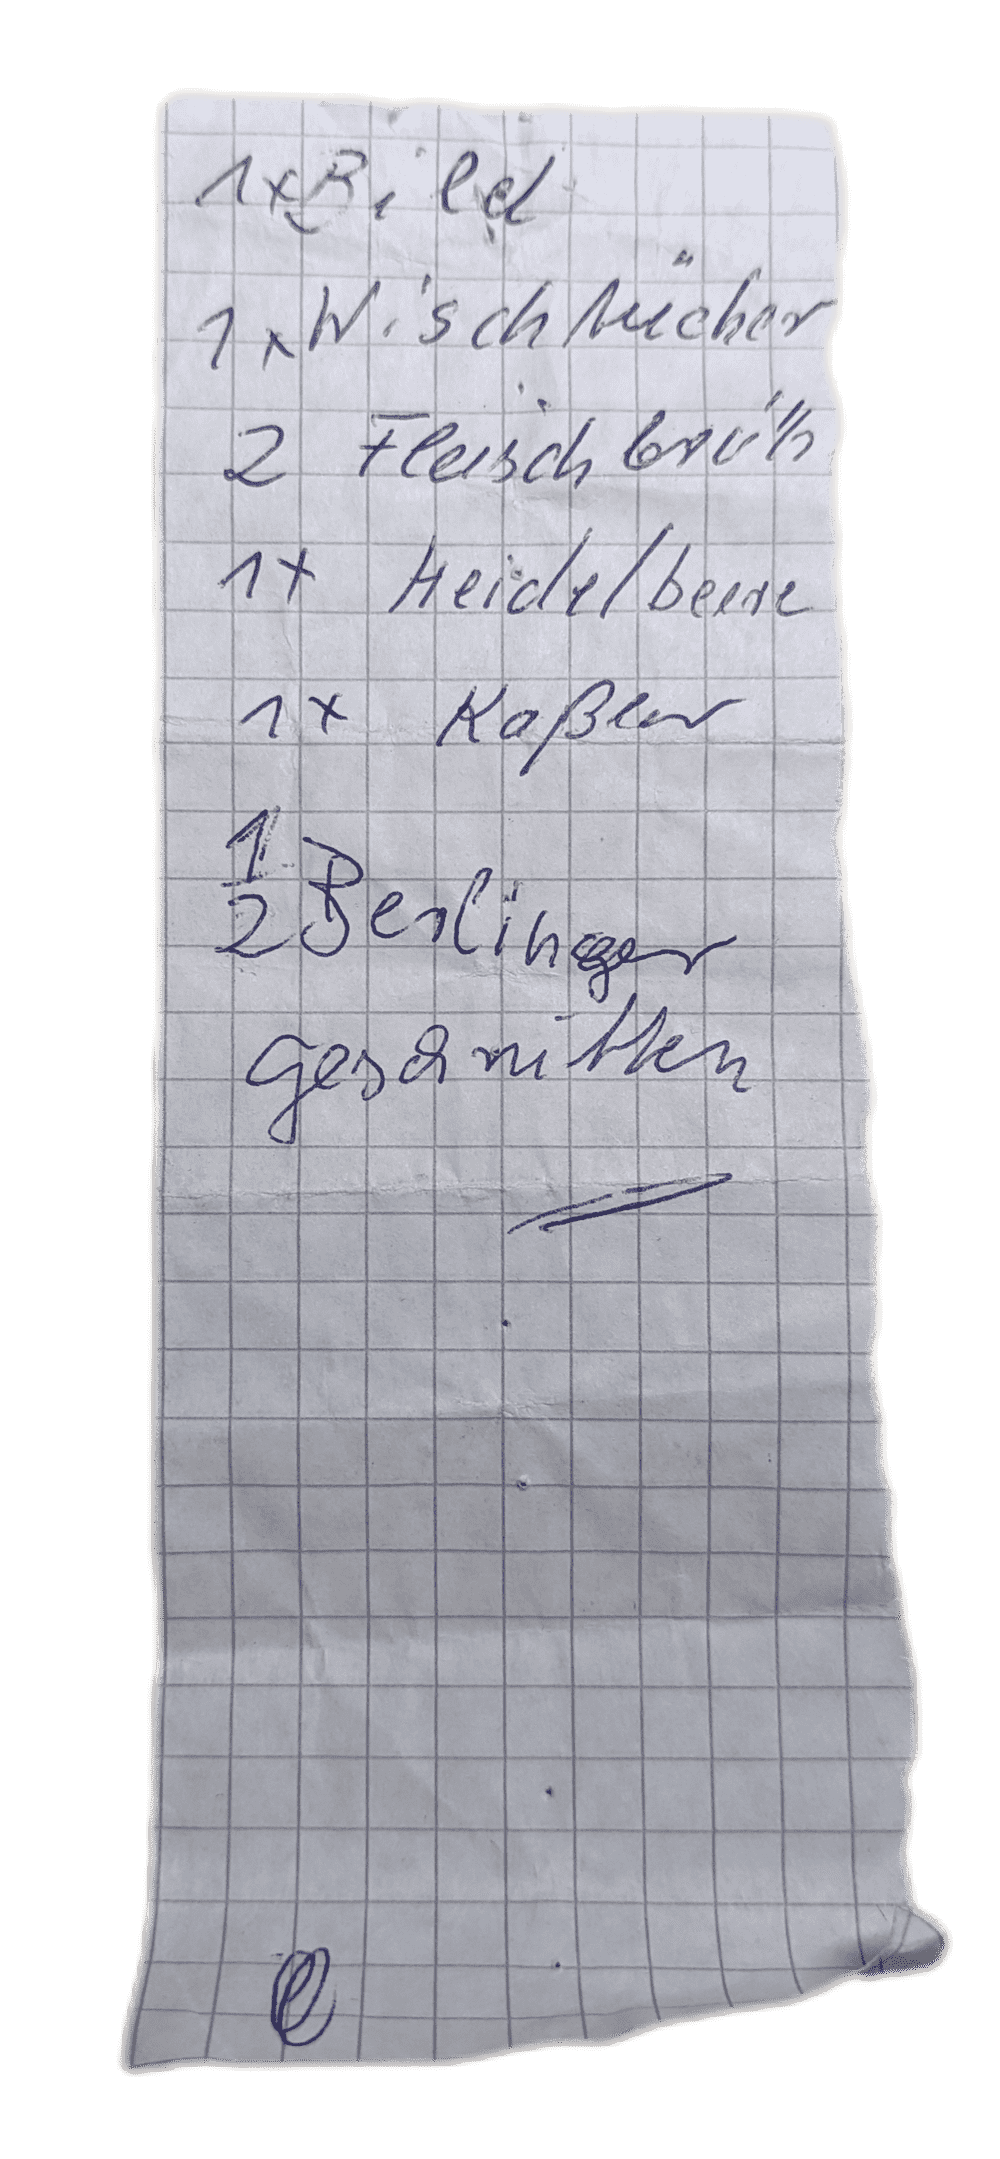 1x Bild
1x Wischtücher
2 Fleischbrüh
1x Heidelbeere
1x Kaßler
1/2 Berlinger
geschnitten